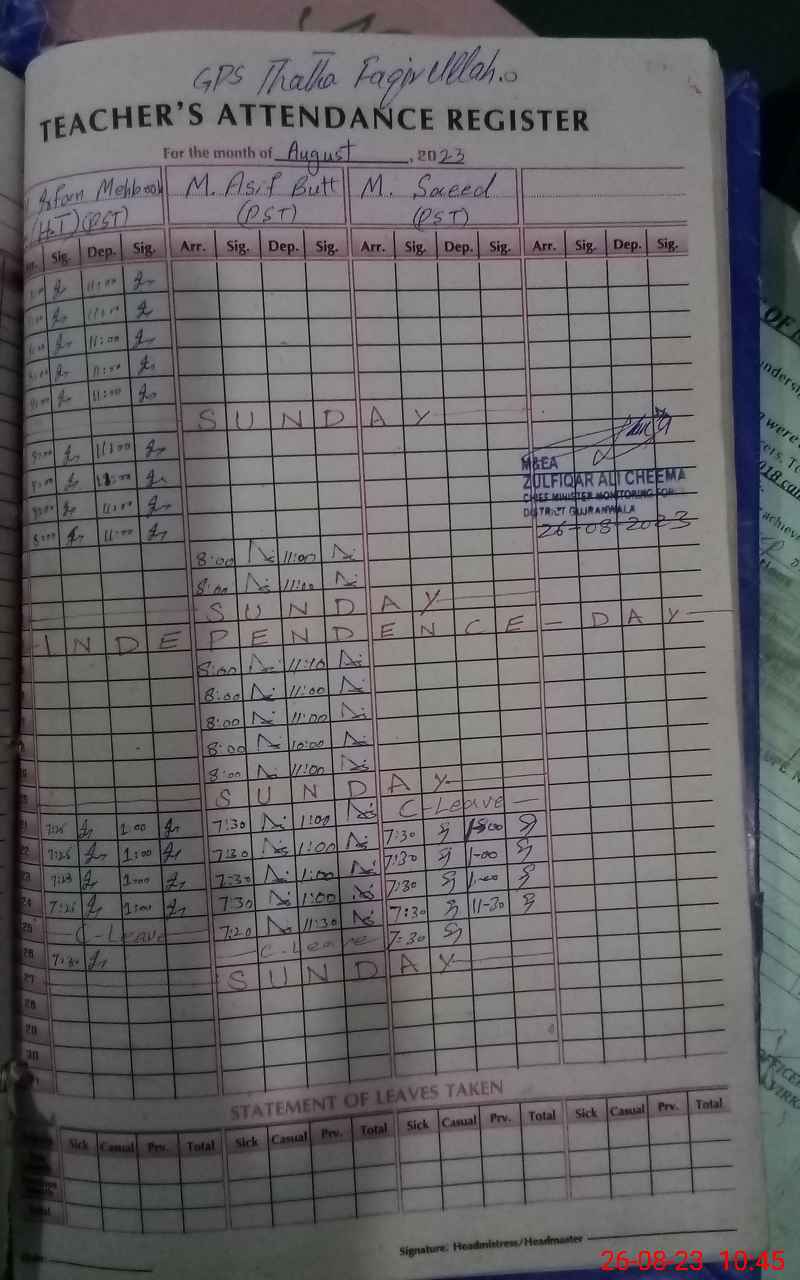 GPS Thatha Faqir Ullah.
TEACHER'S ATTENDANCE REGISTER
For the month of August, 2023
Irfan Mehboob M. Asif Butt M. Saeed
(H.T) (PST) (PST) (PST)
Arr. Sig. Dep. Sig. Arr. Sig. Dep. Sig. Arr. Sig. Dep. Sig. Arr. Sig. Dep. Sig.
11:00
11:00
11:00
11:00
8:00 11:00
SUNDAY
8:00 11:00
8:00
8:00 11:00
8:00 11:00
8:00 11:00
8:00 11:00
SUNDAY
INDEPENDENCE - DAY
8:00 11:10
8:00 11:00
8:00 11:00
8:00 10:00
8:00 11:00
SUNDAY
21 7:25 1:00 7:30 1:00 C-Leave
22 7:25 1:00 7:30 1:00 7:30
23 7:25 1:00 7:30 1:00 7:30 1-00
24 7:25 1:00 7:30 1:00 7:30 1:00
25 C-Leave 7:20 11:30 7:30 11-30
26 7:30 C-Leave 7:30
27 SUNDAY
28
29
30
M&EA
ZULFIQAR ALI CHEEMA
CHIEF MINISTER MONITORING FOR
DISTRICT GUJRANWALA
26-08-2023
STATEMENT OF LEAVES TAKEN
Sick Casual Prv. Total Sick Casual Prv. Total Sick Casual Prv. Total Sick Casual Prv. Total
Total
Signature. Headmistress/Headmaster
26-08-23 10:45